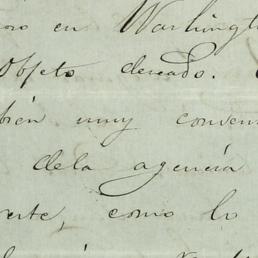 en Washingt
Objeto deseado.
bién muy conven
dela agencia
ente, como lo